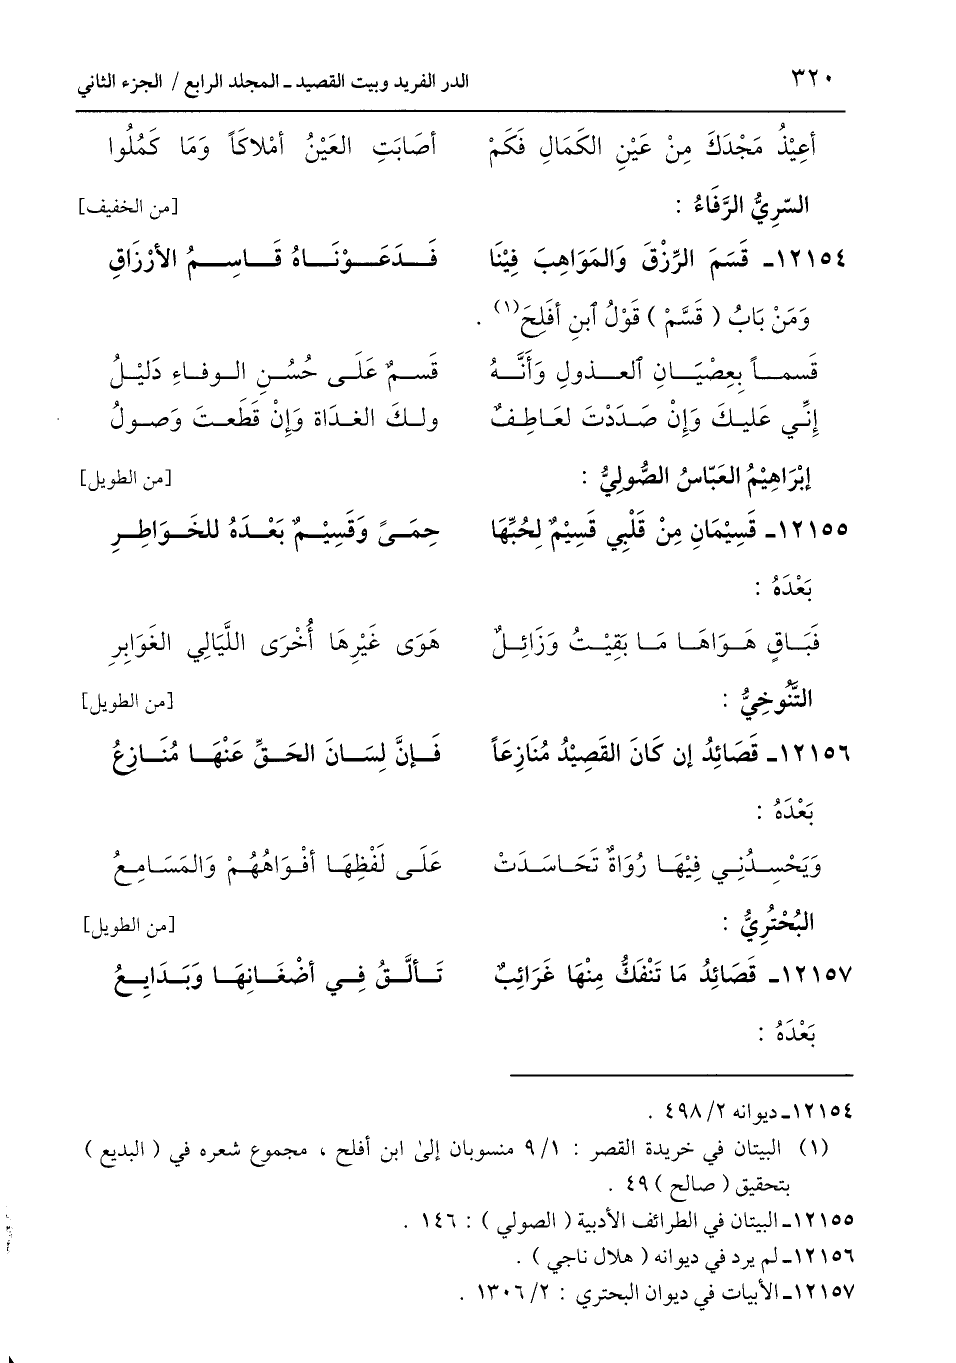 ٣٢٠ الدر الفريد وبيت القصيد ـ المجلد الرابع / الجزء الثاني
أعِيْذُ مَجْدَكَ مِنْ عَيْنِ الكَمَالِ فَكَمْ أصَابَتِ العَيْنُ أمْلاكَاً وَمَا كَمُلُوا
السّرِيُّ الرَّفَاءُ : [من الخفيف]
١٢١٥٤ـ قَسَمَ الرِّزْقَ وَالمَوَاهِبَ فِيْنَا فَـدَعَـوْنَـاهُ قَـاسِـمُ الأرْزَاقِ
وَمَنْ بَابُ ( قَسَّمْ ) قَوْلُ ٱبنِ أفَلِحَ(١) .
قَسمـاً بِعِصْيَـانِ ٱلعـذولِ وَأنَّـهُ قَسـمٌ عَلَـى حُسُـنِ الـوفـاءِ دَليْـلُ
إنِّـي عَليـكَ وَإنْ صَـدَدْتَ لعَـاطِـفٌ ولـكَ الغـدَاة وَإنْ قَطَعـتَ وَصـولُ
إبْرَاهِيْمُ العَبّاسُ الصُّولِيُّ : [من الطويل]
١٢١٥٥ـ قَسِيْمَانِ مِنْ قَلْبِي قَسِيْمٌ لِحُبِّهَا حِمَـىً وَقَسِيْـمٌ بَعْـدَهُ للخَـوَاطِـرِ
بَعْدَهُ :
فَبَـاقٍ هَـوَاهَـا مَـا بَقِيْـتُ وَزَائِـلٌ هَوَى غَيْرِهَا أُخْرَى اللَّيَالِي الغَوَابِرِ
التَّنُوخِيُّ : [من الطويل]
١٢١٥٦ـ قَصَائِدُ إن كَانَ القَصِيْدُ مُنَازِعَاً فَـإنَّ لِسَـانَ الحَـقِّ عَنْهَـا مُنَـازِعُ
بَعْدَهُ :
وَيَحْسِـدُنِـي فِيْهَـا رُوَاةٌ تَحَـاسَـدَتْ عَلَـى لَفْظِهَـا أفْـوَاهُهُـمْ وَالمَسَـامِـعُ
البُحْتُرِيُّ : [من الطويل]
١٢١٥٧ـ قَصَائِدُ مَا تَنْفَكُّ مِنْهَا غَرَائِبٌ تَـألَّـقُ فِـي أضْغَـانِهَـا وَبَـدَايِـعُ
بَعْدَهُ :
١٢١٥٤ـ ديوانه ٢/ ٤٩٨ .
(١) البيتان في خريدة القصر : ١/ ٩ منسوبان إلىٰ ابن أفلح ، مجموع شعره في ( البديع )
بتحقيق ( صالح ) ٤٩ .
١٢١٥٥ـ البيتان في الطرائف الأدبية ( الصولي ) : ١٤٦ .
١٢١٥٦ـ لم يرد في ديوانه ( هلال ناجي ) .
١٢١٥٧ـ الأبيات في ديوان البحتري : ٢/ ١٣٠٦ .